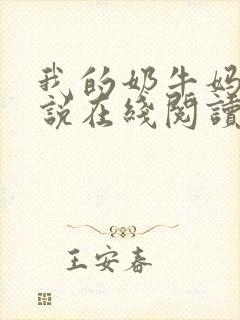 我的奶牛妈
說在綫閱讀
王安春